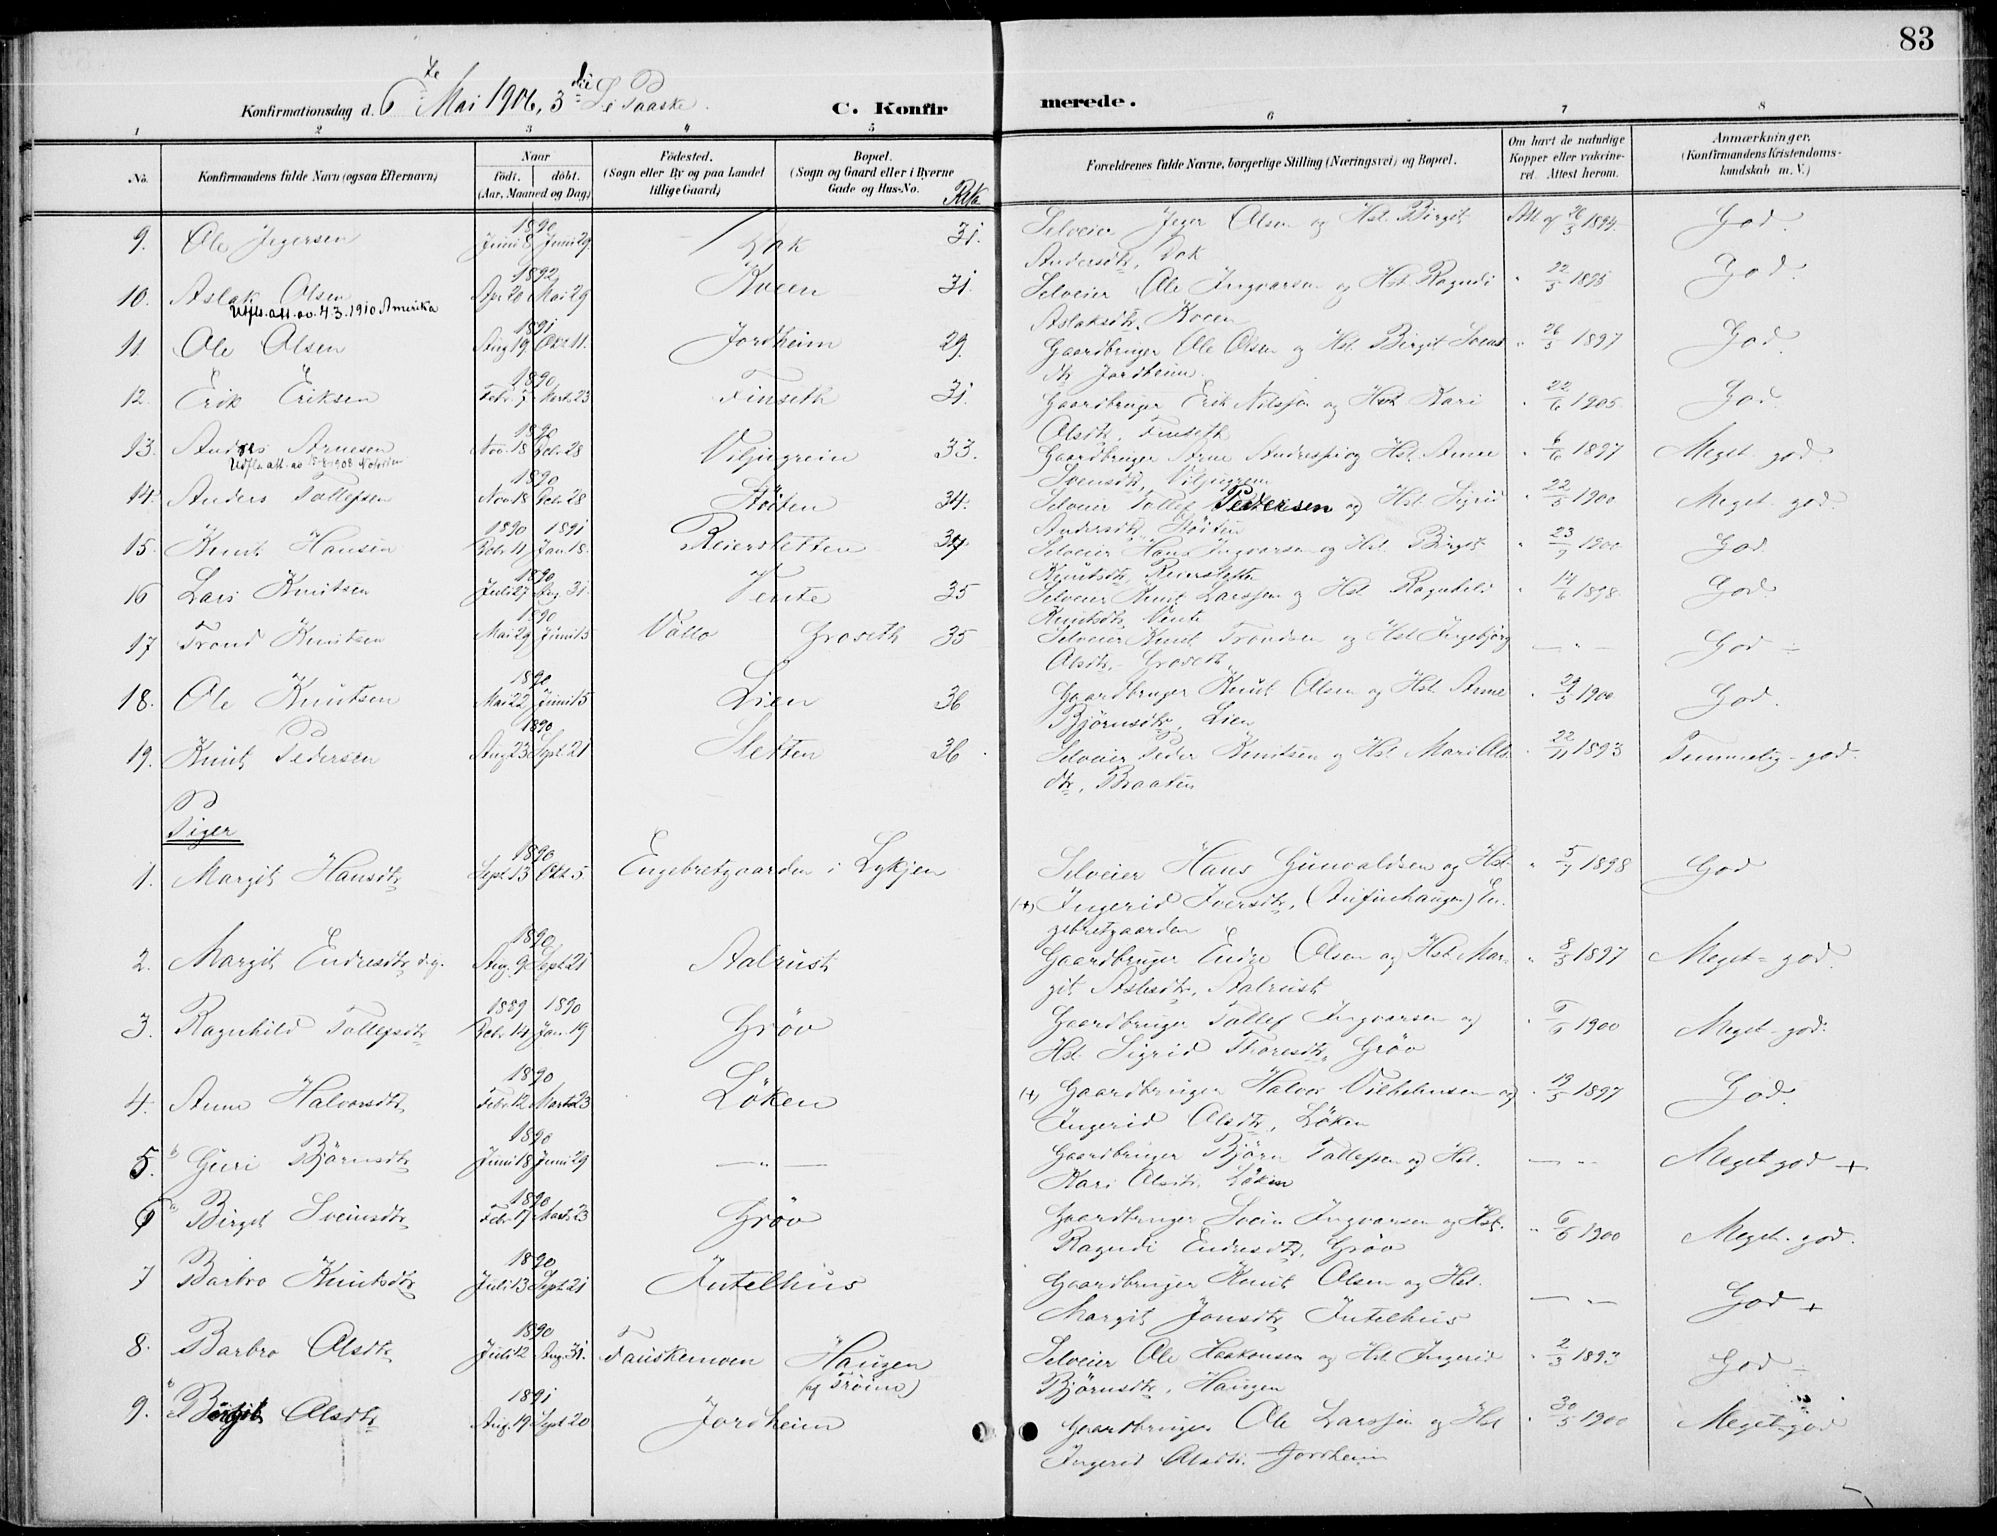 83
Konfirmationsdag d. 6te Mai 1906, 3die S. e. Paaske. C. Konfir merede.
1 2 3 4 5 6 7 8
No. Konfirmandens fulde Navn (ogsaa Efternavn) Naar Födt. döbt. (Aar, Maaned og Dag) Födested. (Sogn eller By og paa Landet tillige Gaard) Bopæl. (Sogn og Gaard eller i Byerne Gade og Hus-No. Forældrenes fulde Navne, borgerlige Stilling (Næringsvei) og Bopæl. Om havt de naturlige Kopper eller vakcineret. Attest herom. Anmærkninger. (Konfirmandens Kristendomskundskab m. V.)
1890
9. Ole Jegersen Juni 8 Juni 29. Dok 31. Selveier Jeger Olsen og Hst. Birgit Att. af 26/5 1894. God.
Andersdtr, Dok
1892
10. Aslak Olsen Apr 20 Mai 29 Kveen 31. Selveier Ole Ingvarsen og Hst. Ragndi " 22/5 1895 God.
Udfl. att. av 4.3.1910 Amerika Aslaksdtr, Kveen
1891
11. Ole Olsen Aug 19 Okt 11. Jordheim 29. Gaardbruger Ole Olsen og Hst. Birgit Svens " 26/5 1897 God.
dtr Jordheim.
1890
12. Erik Eriksen Febr 7 Marts 23 Finseth 31. Gaardbruger Erik Nilssen og Hst Kari " 22/6 1905 God.
Olsdtr, Finseth
1890
13. Anders Arnesen Nov. 18 Dcbr. 28 Viljugrein 33. Gaardbruger Arne Andersen og Hst. Anne " 6/6 1897 Meget god.
Svensdtr, Viljugrein
1890
14. Anders Tollefsen Nov 18 Dcbr 28 Stöiten 34. Selveier Tollef Pedersen og Hst. Sigrid " 22/5 1900 Meget god.
Andersdtr Stöiten
1890 1891
15. Knut Hansen Dcbr 11 Jan 18. Reiersletten 34 Selveier Hans Ingvarsen og Hst. Birgit " 23/9 1900 God
Knutsdtr, Reiersletten
1890
16 Lars Knutsen Juli 27 Aug. 31. Vente 35 Selveier Knut Larssen og Hst Ragnhild " 14/6 1898 God.
Knutsdtr, Vente
1890
17 Trond Knutsen Mai 29 Juni 15 Vollo Groseth 35 Selveier Knut Trondsen og Hst Ingebjörg — " — God ÷
Olsdtr, Groseth
1890
18. Ole Knutsen Mai 22 Juni 15 Lien 36 Gaardbruger Knut Olsen og Hst. Anne " 29/5 1900 God.
Björnsdtr, Lien
1890
19. Knut Pedersen Aug 23 Sept 21 Sletten 36 Selveier Peder Knutsen og Hst. Mari Ols " 22/11 1893 Temmelig god.
dtr, Braaten
Piger
1890
1. Margit Hansdtr Sept 13 Okt. 5 Engebretgaarden i Lykjen Selveier Hans Gunvaldsen og Hst. " 5/7 1898 God
(+) Ingerid Iversdtr, (Anfinhaugen) En-
gebretgaarden
1890
2. Margit Endresdtr d.y. Aug. 9 Sept 21 Aalrust Gaardbruger Endre Olsen og Hst. Mar- " 8/5 1897 Meget god.
git Aslesdtr, Aalrust
1889 1890
3. Ragnhild Tollefsdtr Dcbr. 14 Jan. 19 Gröv Gaardbruger Tollef Ingvarsen og " 6/6 1900 Meget god.
Hst Sigrid Thoresdtr, Gröv
1890
4. Anne Halvorsdtr Febr 12 Marts 23 Löken (+) Gaardbruger Halvor Vilhelmsen og " 19/5 1897 God.
Ingerid Olsdtr, Löken
1890
5. Guri Björnsdtr Juni 18 Juni 29 — " — Gaardbruger Björn Tollefsen og Hst. — " Meget god +
Kari Olsdtr, Löken
1890
6 Birgit Sveinsdtr Febr 17 Marts 23 Gröv Gaardbruger Svein Ingvarsen og Hst. " 6/6 1900 Meget god.
Ragndi Endresdtr, Gröv
1890
7 Barbro Knutsdtr Juli 13 Sept 21 Intelhus Gaardbruger Knut Olsen og Hst. — " — God +
Margit Jonsdtr Intelhus
1890
8. Barbro Olsdtr Juli 12 Aug. 31. Fauskemoen Haugen Selveier Ole Haakonsen og Hst Ingerid " 2/3 1893 God ÷
(af Tröim) Björnsdtr, Haugen
1891
9. Birgit Olsdtr Aug. 19 Sept 20 Jordheim Gaardbruger Ole Larssen og Hst " 30/5 1900 Meget god
Ingerid Olsdtr. Jordheim